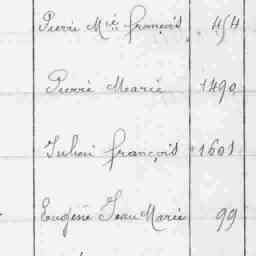 Pierre Mié françois 454
Pierre Marie 1490
Julien françois 1601
Eugène Jean Marie 99